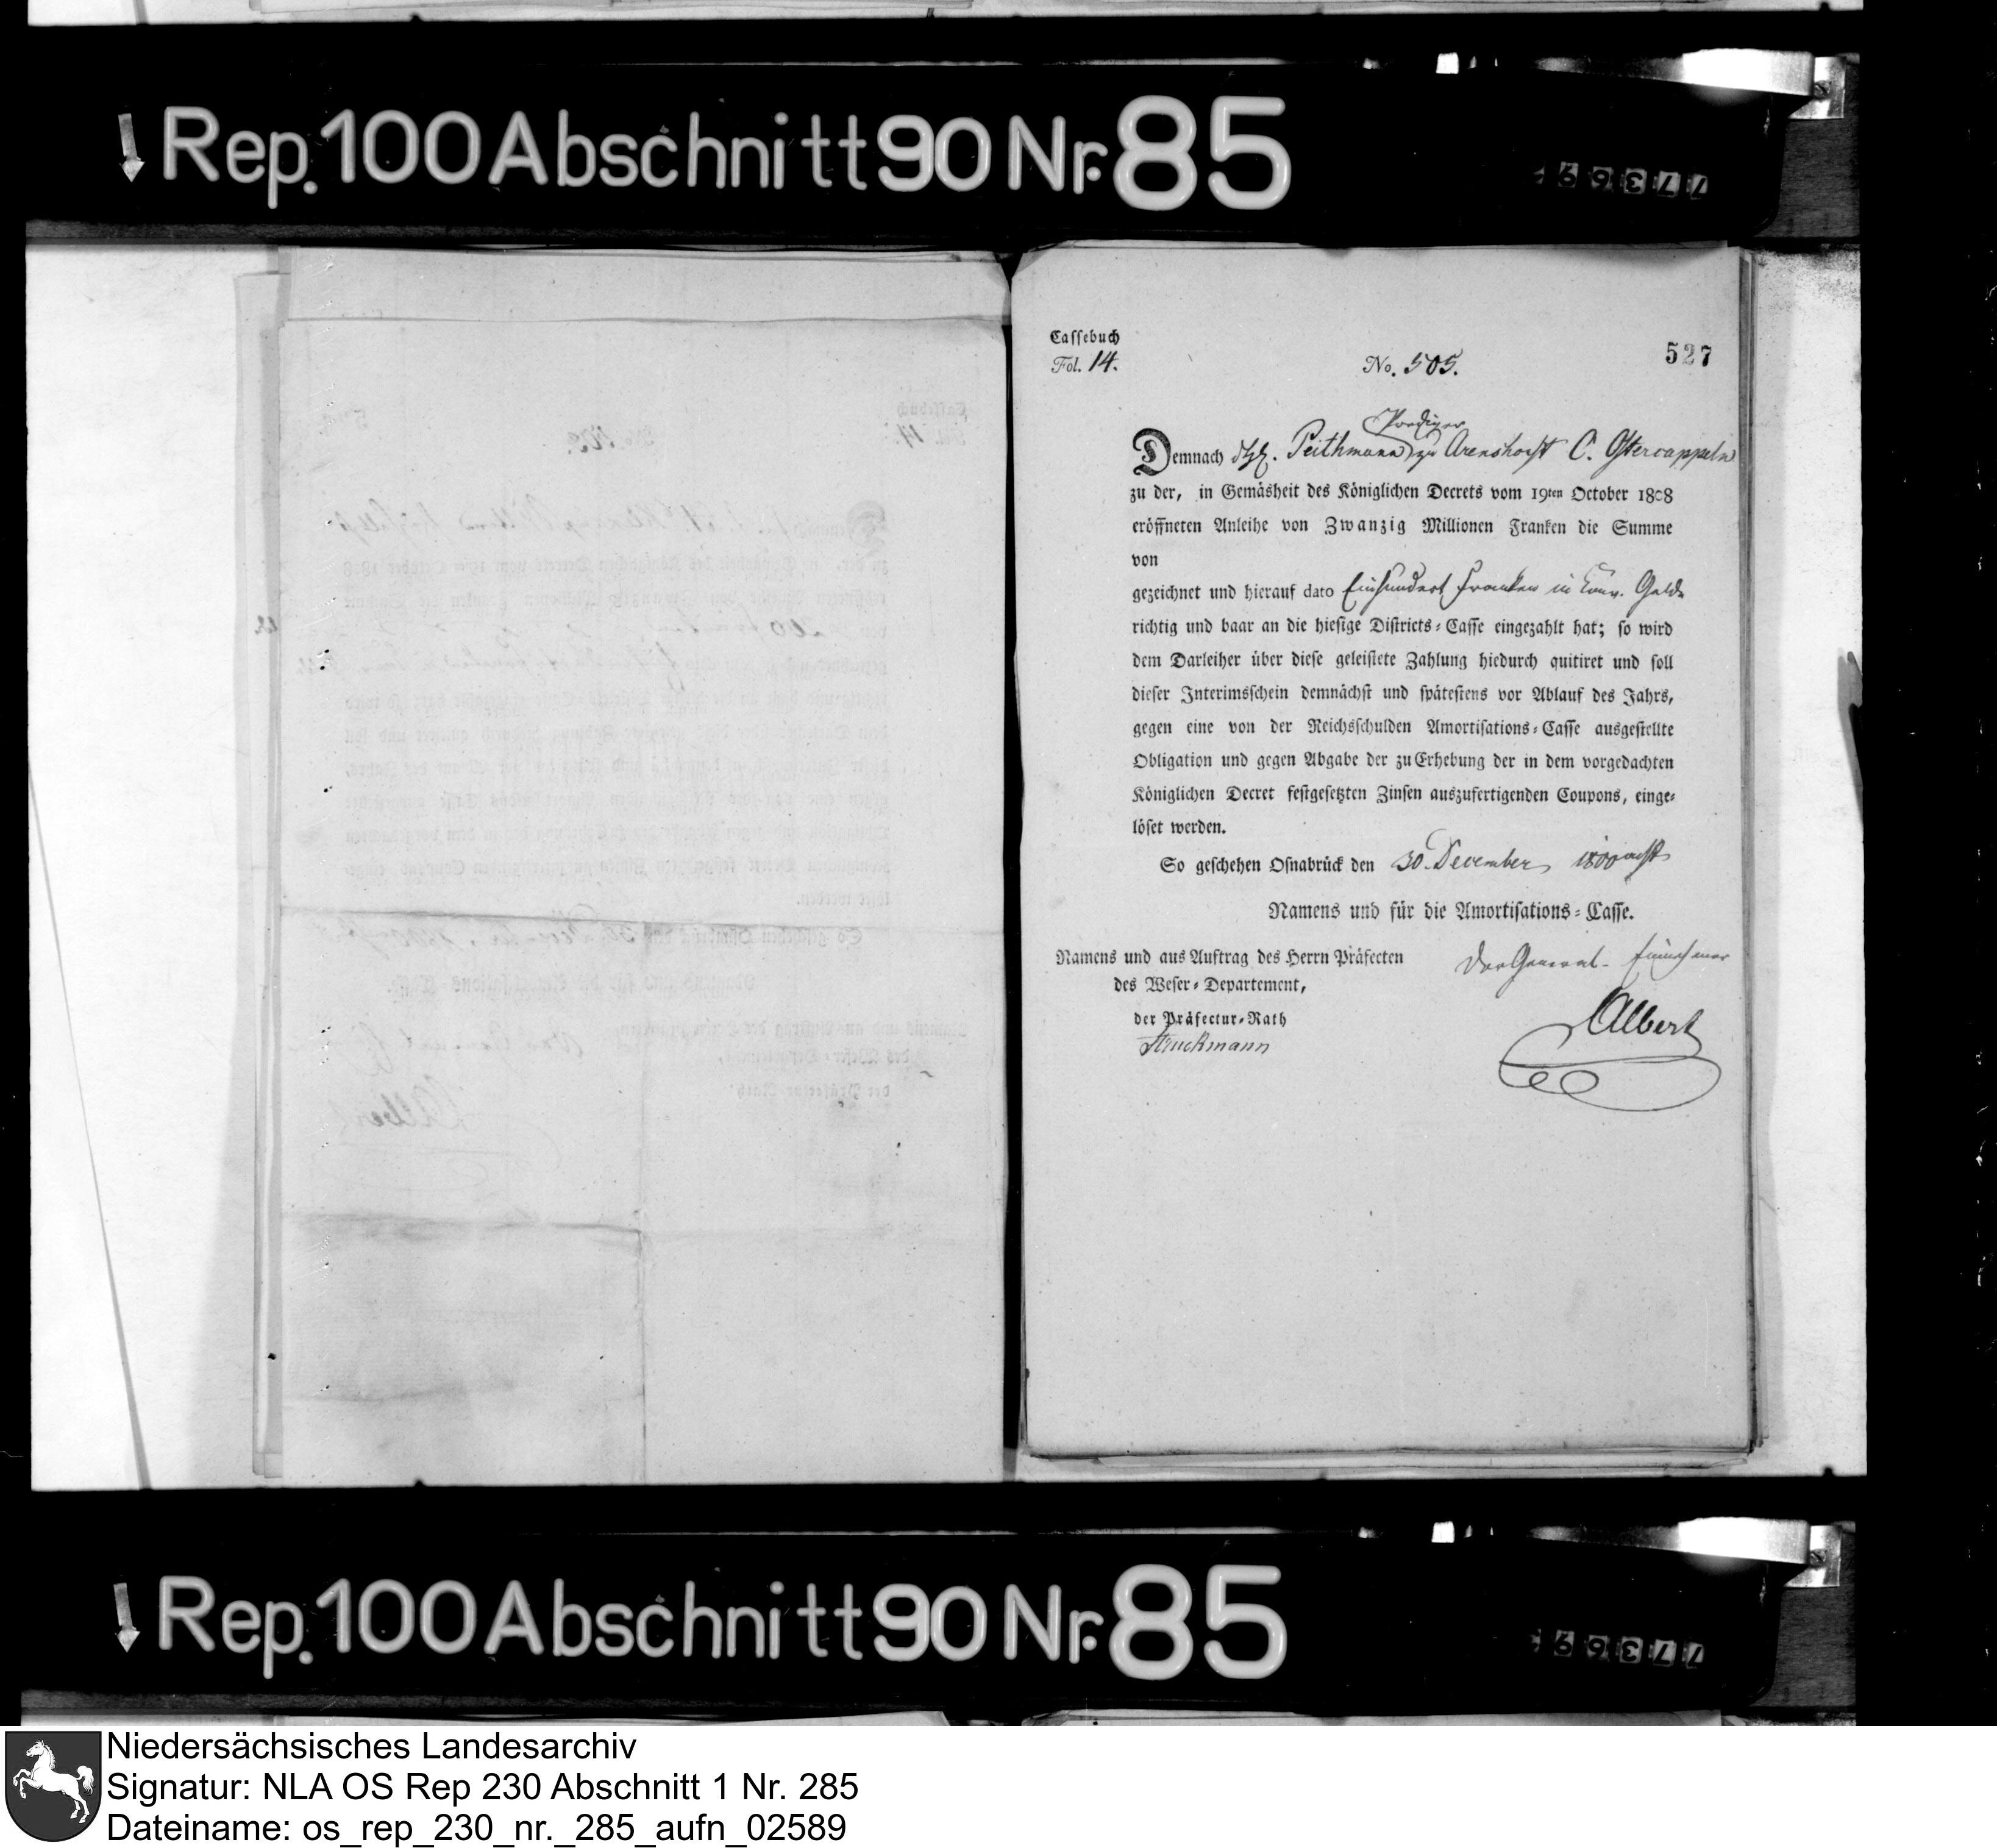 Rep. 100 Abschnitt 90 Nr. 85
77369
Cassebuch
Fol. 14.
No. 505.
527
Prediger
Demnach Peithmann zu Arenshorst C. Ostercappeln
zu der, in Gemäsheit des Königlichen Decrets vom 19ten October 1808
eröffneten Anleihe von Zwanzig Millionen Franken die Summe
von
gezeichnet und hierauf dato Einhundert Franken in Conv. Gelde
richtig und baar an die hiesige Districts-Casse eingezahlt hat; so wird
dem Darleiher über diese geleistete Zahlung hiedurch quitiret und soll
dieser Interimsschein demnächst und spätestens vor Ablauf des Jahrs,
gegen eine von der Reichsschulden Amortisations-Casse ausgestellte
Obligation und gegen Abgabe der zu Erhebung der in dem vorgedachten
Königlichen Decret festgesetzten Zinsen auszufertigenden Coupons, einge-
löset werden.
So geschehen Osnabrück den 30. December 1800 acht
Namens und für die Amortisations-Casse.
Namens und aus Auftrag des Herrn Präfecten
des Weser-Departement,
der Präfectur-Rath
Struckmann
Der General-Einnehmer
Albert
Rep. 100 Abschnitt 90 Nr. 85
77369
Niedersächsisches Landesarchiv
Signatur: NLA OS Rep 230 Abschnitt 1 Nr. 285
Dateiname: os_rep_230_nr._285_aufn_02589